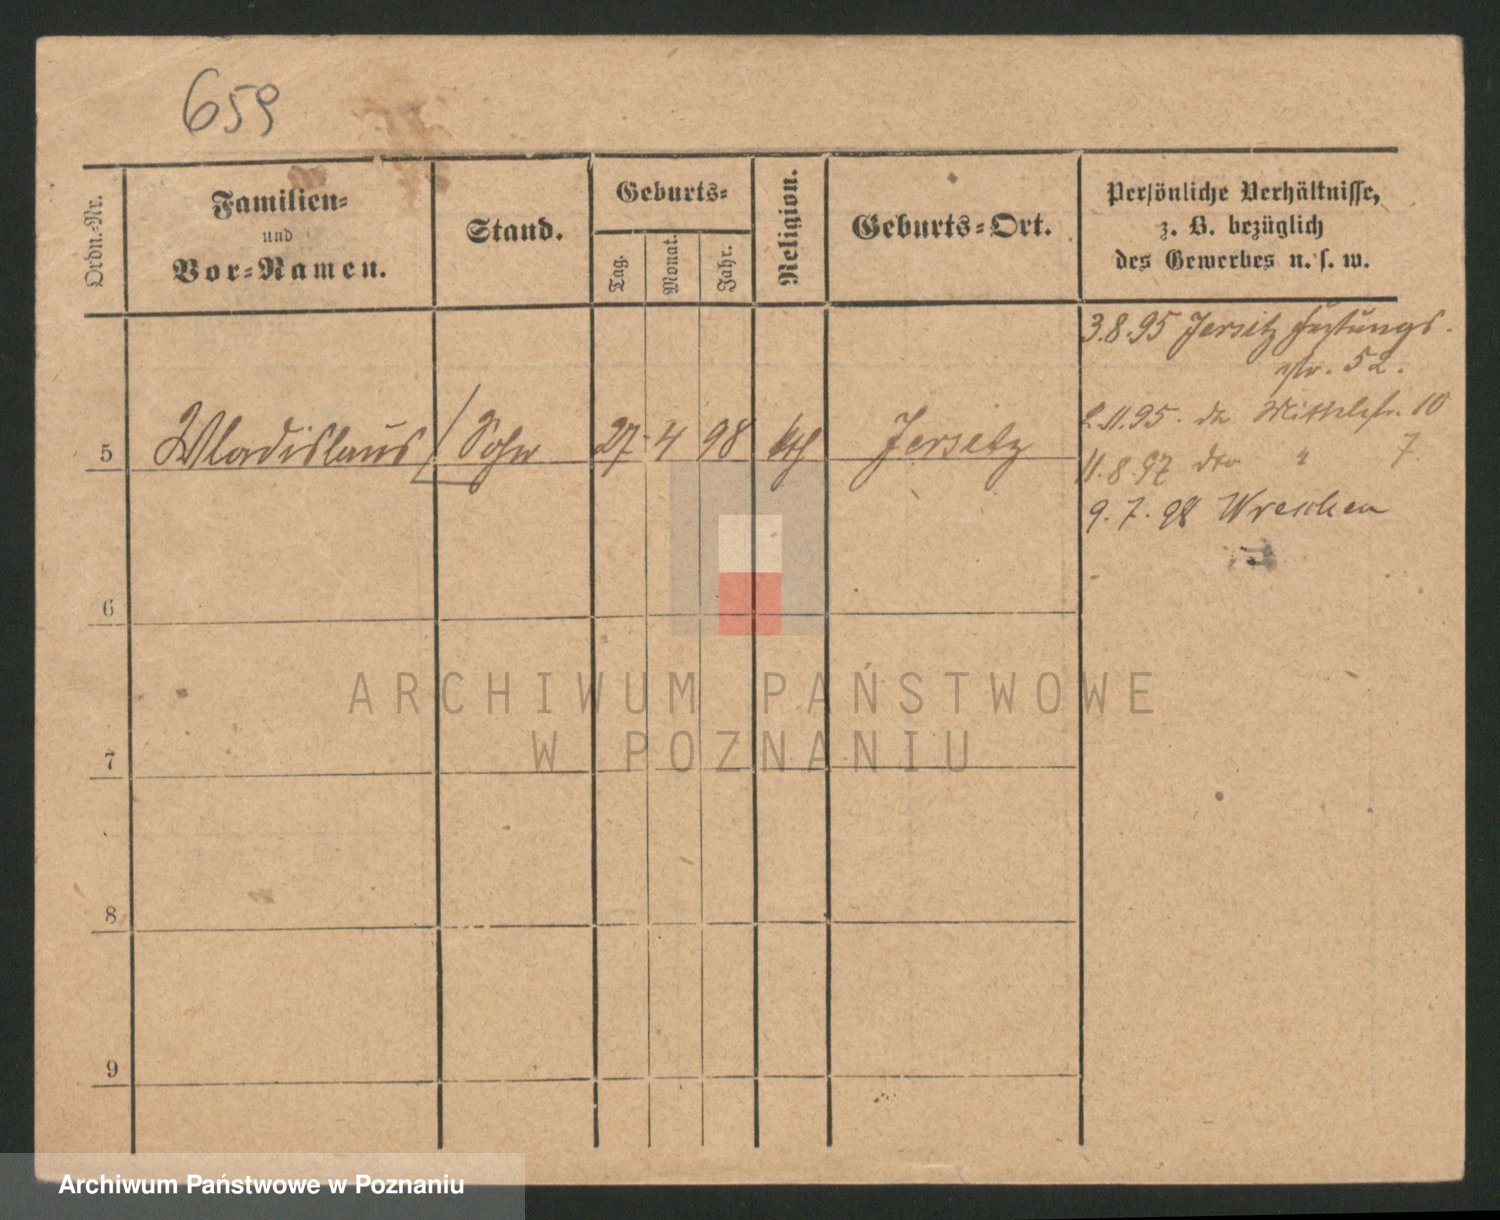 659
Ordn.-Nr.
Familien-
und
Vor-Namen.
Stand.
Geburts-
Tag.
Monat.
Jahr.
Religion.
Geburts-Ort.
Persönliche Verhältnisse,
z. B. bezüglich
des Gewerbes u. s. w.
3.8.95 Jersitz Festungs-
str. 52.
5 Wladislaus / Sohn 27 4 98 kth Jersitz
2.11.95. do Mittelstr. 10
11.8.97 dto " 7
9.7.98 Wreschen
6
7
8
9
ARCHIWUM PAŃSTWOWE
W POZNANIU
Archiwum Państwowe w Poznaniu